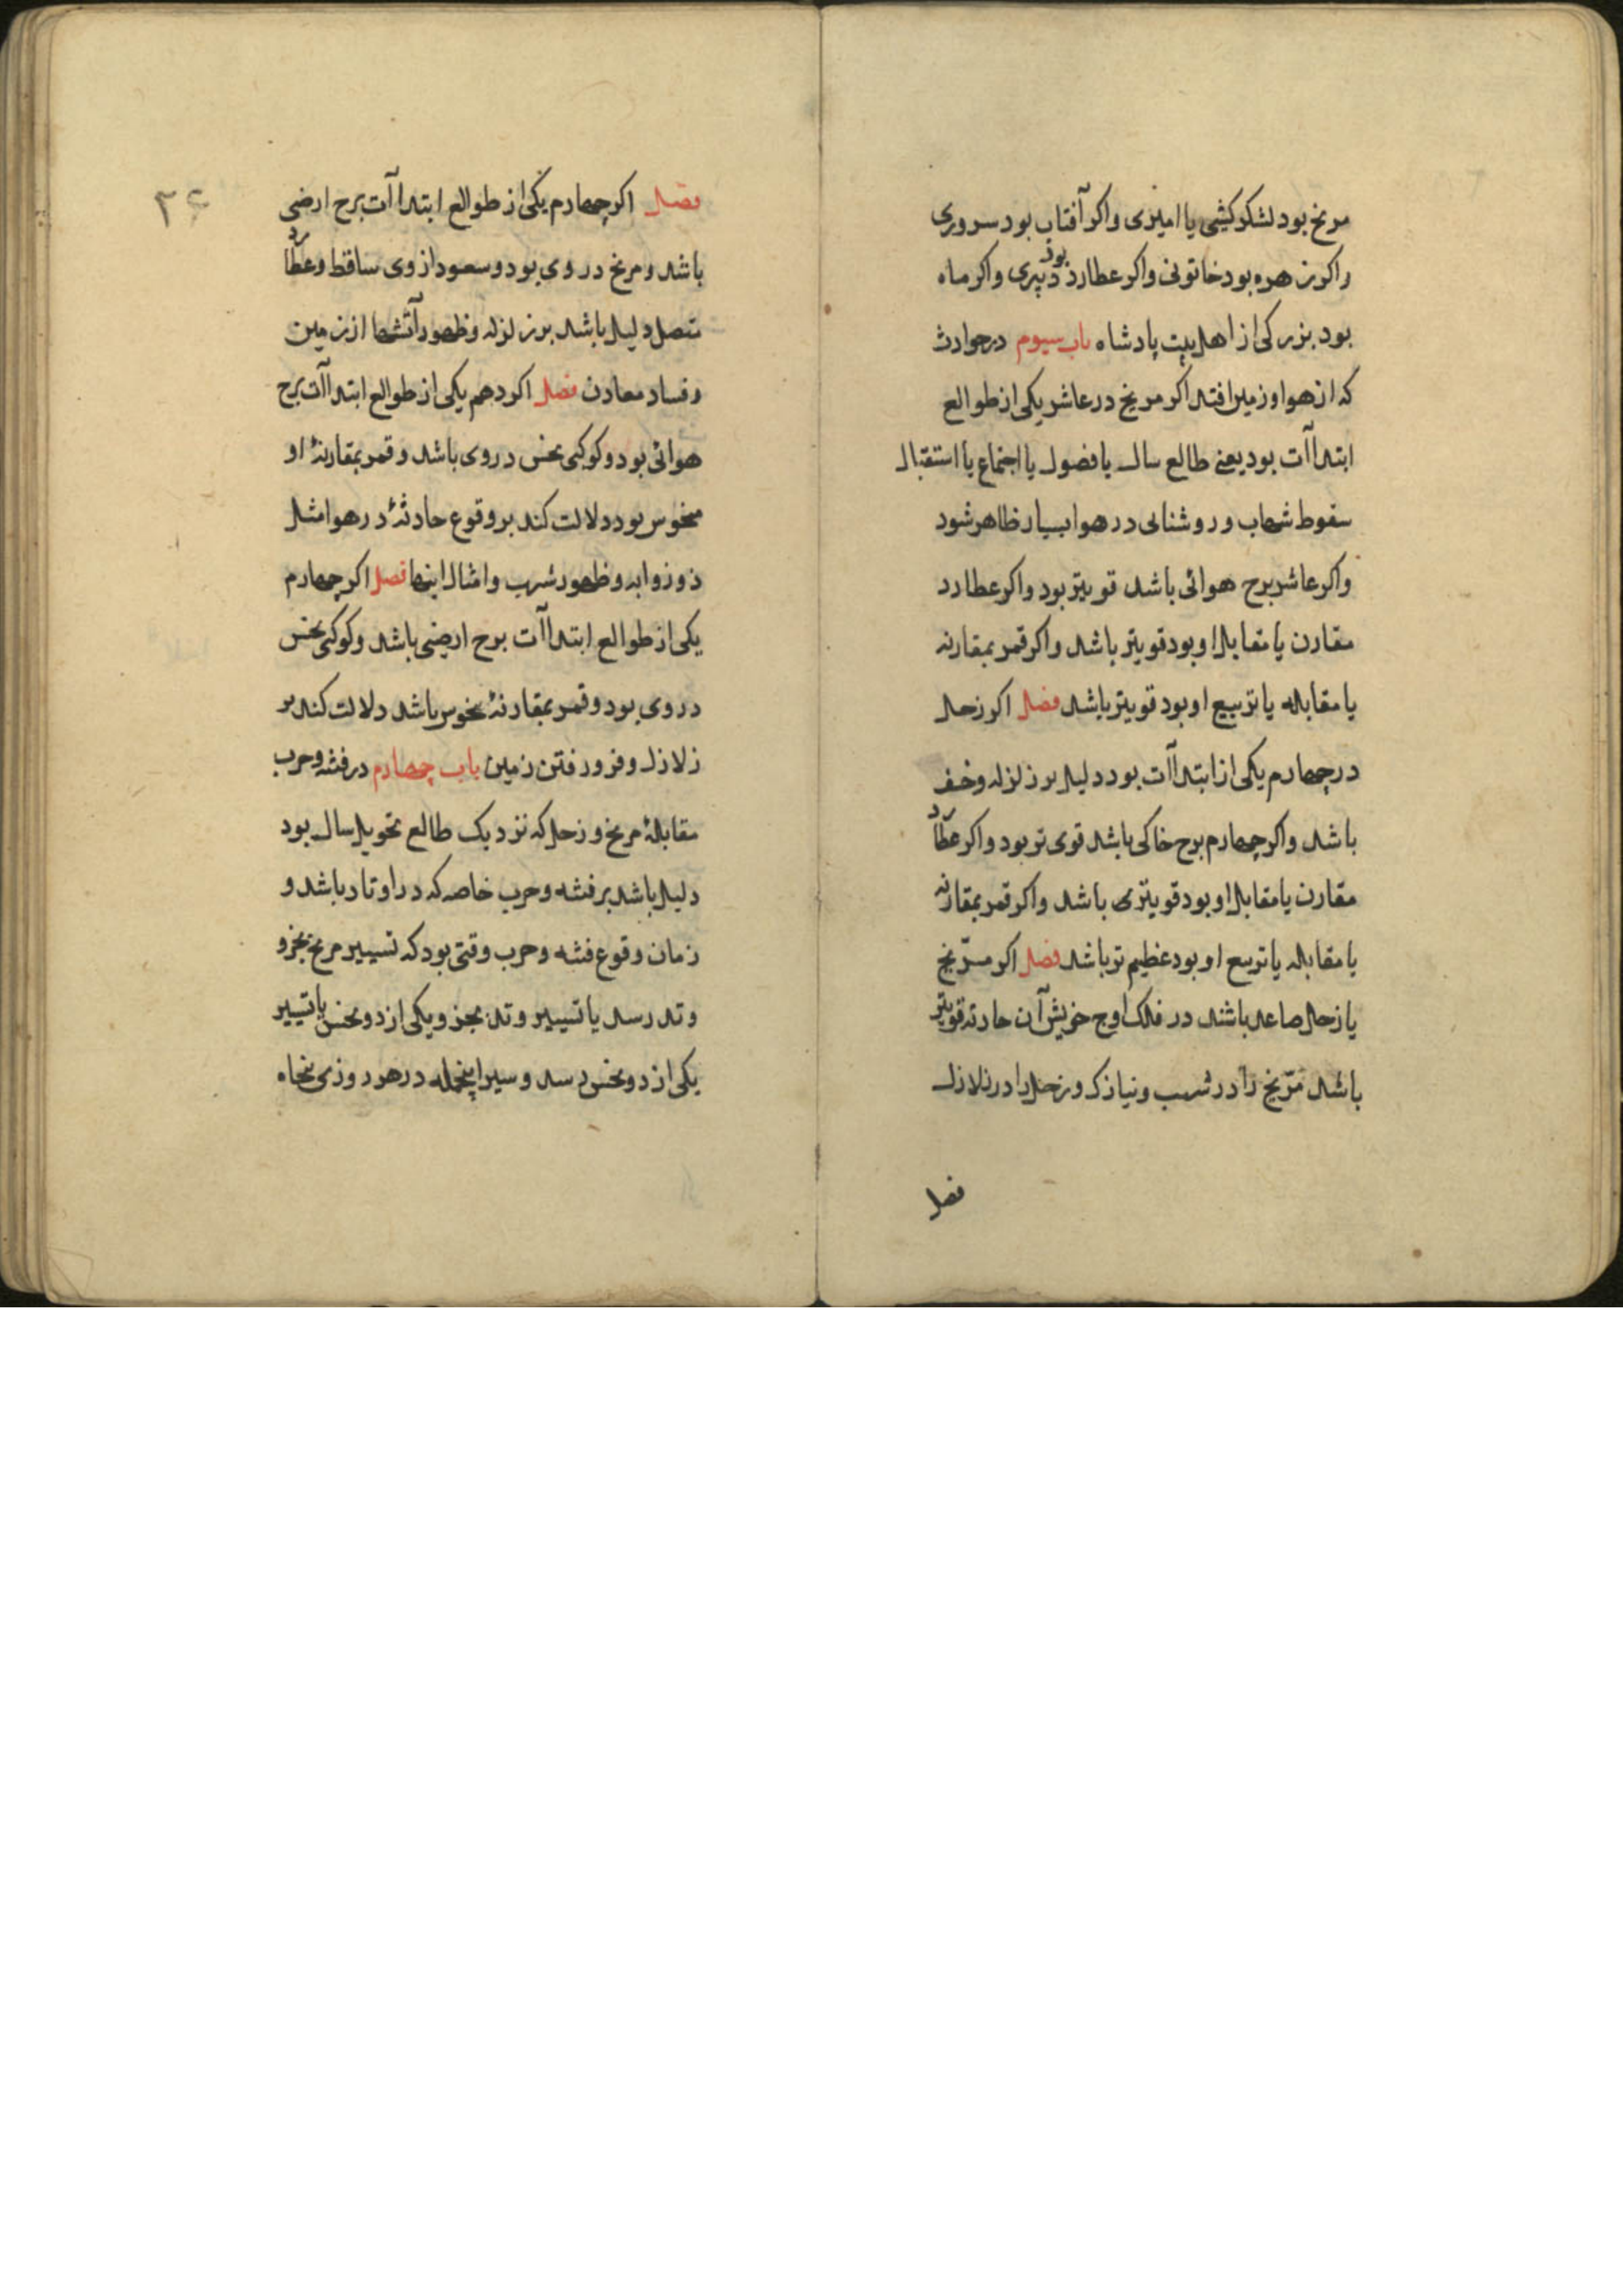 مریخ بود لشکرکشی یا امیری واکر آفتاب بود سروری
واکر زهره بود خاتونی واکر عطارد بود دبیری واکر ماه
بود بزرکی از اهل بیت پادشاه باب سیوم در حوادث
که از هوا و زمین افتد اکر مریخ در عاشر یکی از طوالع
ابتداآت بود یعنی طالع سال یا فصول یا اجتماع یا استقبال
سقوط شهاب و روشنائی در هوا بسیار ظاهر شود
واکر عاشر برج هوائی باشد قویتر بود واکر عطارد
مقارن یا مقابل او بود قویتر باشد واکر قمر بمقارنه
یا مقابله یا تربیع او بود قویتر باشد فصل اکر زحل
در چهارم یکی از ابتداآت بود دلیل بر زلزله وخسف
باشد واکر چهارم برج خاکی باشد قوی تر بود واکر عطارد
مقارن یا مقابل او بود قویتری باشد واکر قمر بمقارنه
یا مقابله یا تربیع او بود عظیم تر باشد فصل اکر مریخ
یا زحل صاعد باشند در فلک اوج خویش آن حادثه قویتر
باشد مریخ را در شهب و نیازک و زحل را در زلازل
فصل
۳۴
فصل اکر چهارم یکی از طوالع ابتداآت برج ارضی
باشد و مریخ در وی بود و سعود از وی ساقط و عطارد
متصل دلیل باشد بر زلزله و ظهور آتشها از زمین
و فساد معادن فصل اکر دهم یکی از طوالع ابتداآت برج
هوائی بود و کوکبی نحس در وی باشد و قمر بمقارنهٔ او
منحوس بود دلالت کند بر وقوع حادثهٔ در هوا مثل
ذوذوابه و ظهور شهب و امثال اینها فصل اکر چهارم
یکی از طوالع ابتداآت برج ارضی باشد و کوکبی نحس
در وی بود و قمر بمقارنهٔ منحوس باشد دلالت کند بر
زلازل و فرو رفتن زمین باب چهارم در فتنه و حرب
مقابلهٔ مریخ و زحل که نزدیک طالع تحویل سال بود
دلیل باشد بر فتنه و حرب خاصه که در اوتاد باشد و
زمان وقوع فتنه و حرب وقتی بود که تسییر مریخ بجزو
وتد رسد یا تسییر وتد بجزو یکی از دو نحس یا تسییر
یکی از دو نحس رسد و سیر اینجمله در هر روزی پنجاه